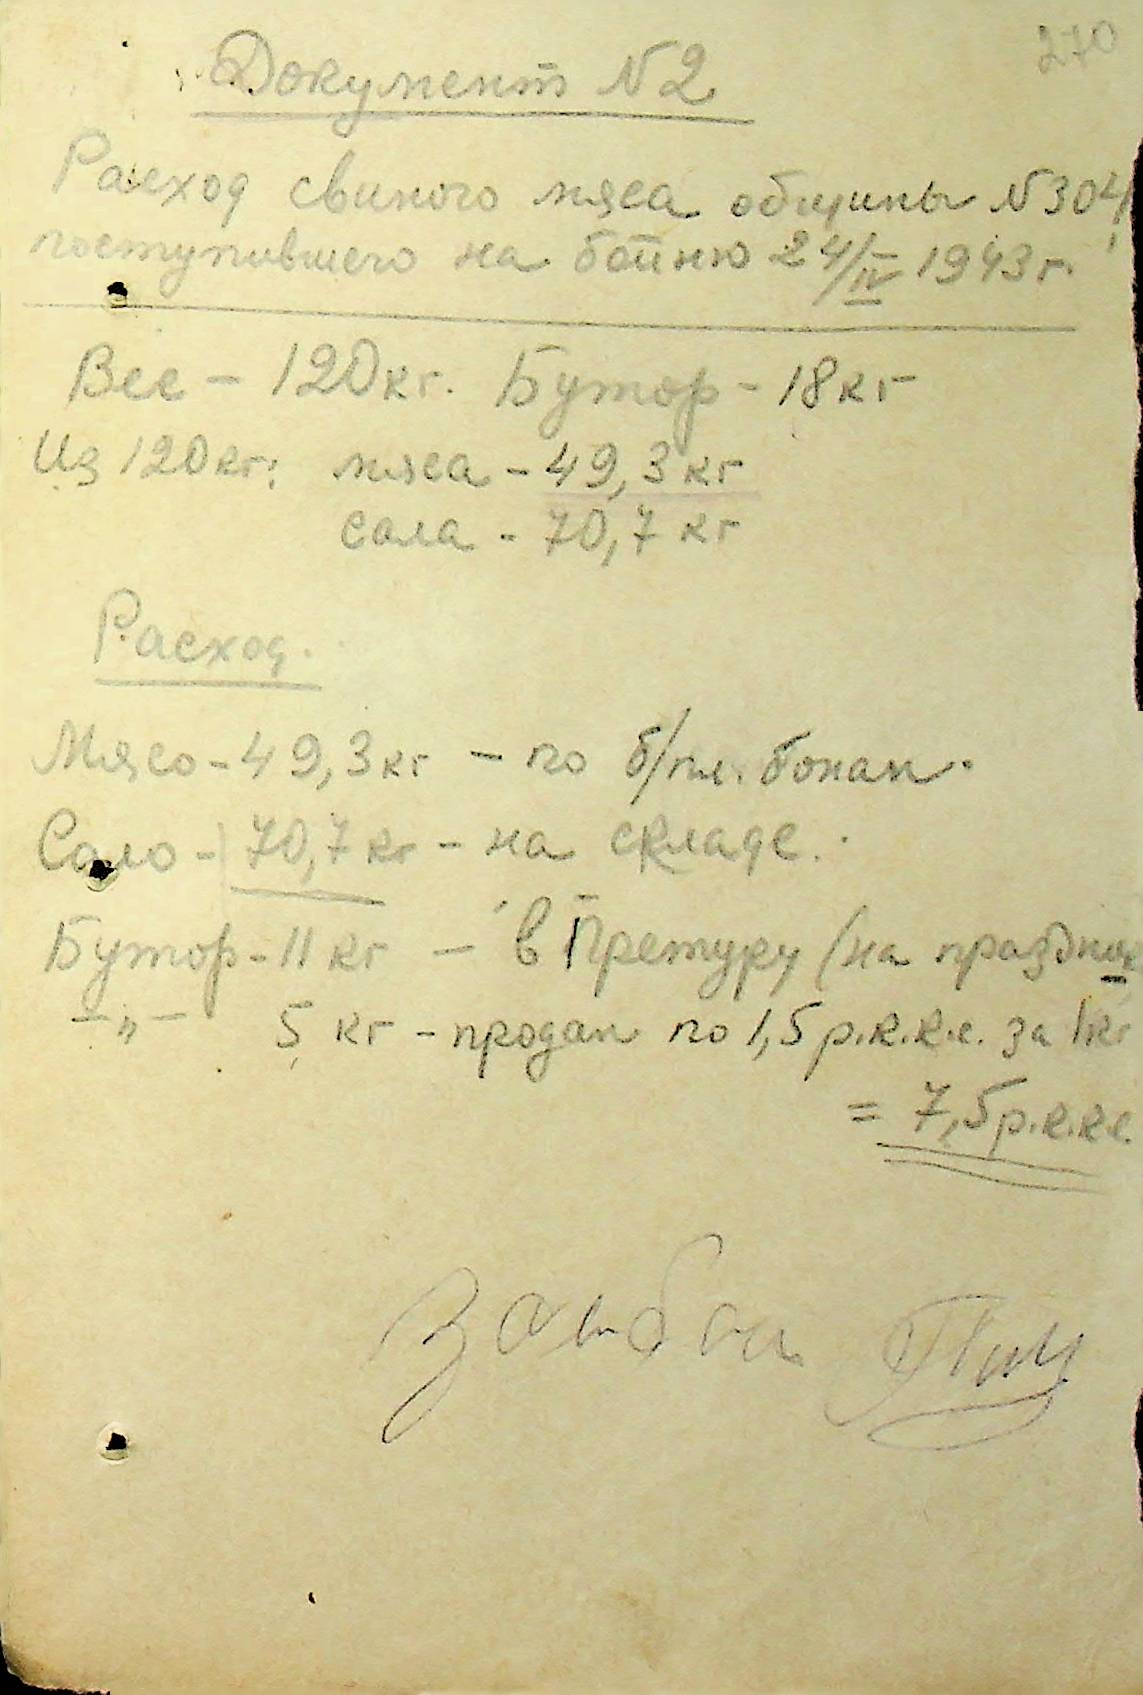 270
Документ N2
Расход свиного мяса общины N304
поступившего на бойню 24/IV 1943 г.
Вес - 120 кг. Бутор - 18 кг
Из 120 кг: мяса - 49,3 кг
сала - 70,7 кг
Расход.
Мясо - 49,3 кг - по б/пл. бонам.
Сало - 70,7 кг - на складе.
Бутор - 11 кг - в Претуру (на праздник
-"- 5 кг - продан по 1,5 р.к.к.с. за 1 кг
= 7,5 р.к.к.с.